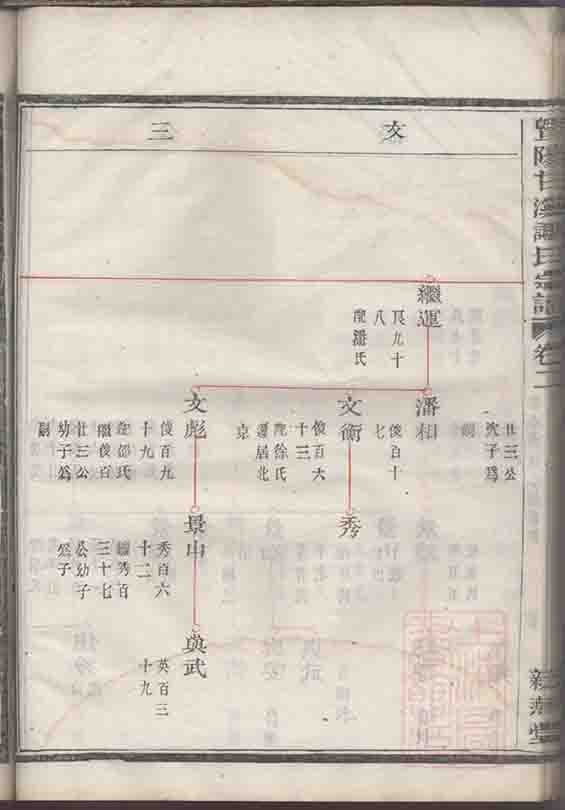 氏宗譜
卷二
文
三
繼運
艮九十
八
配潘氏
廿三公
次子爲
嗣
潘相
俊百十
七
文衡
俊百六
十三
配徐氏
遷居北
京
文彪
俊百九
十九
配邵氏
繼俊百
廿三公
幼子爲
嗣
秀
景中
秀百六
十二
繼秀百
三十七
公幼子
爲子
與武
英百三
十九